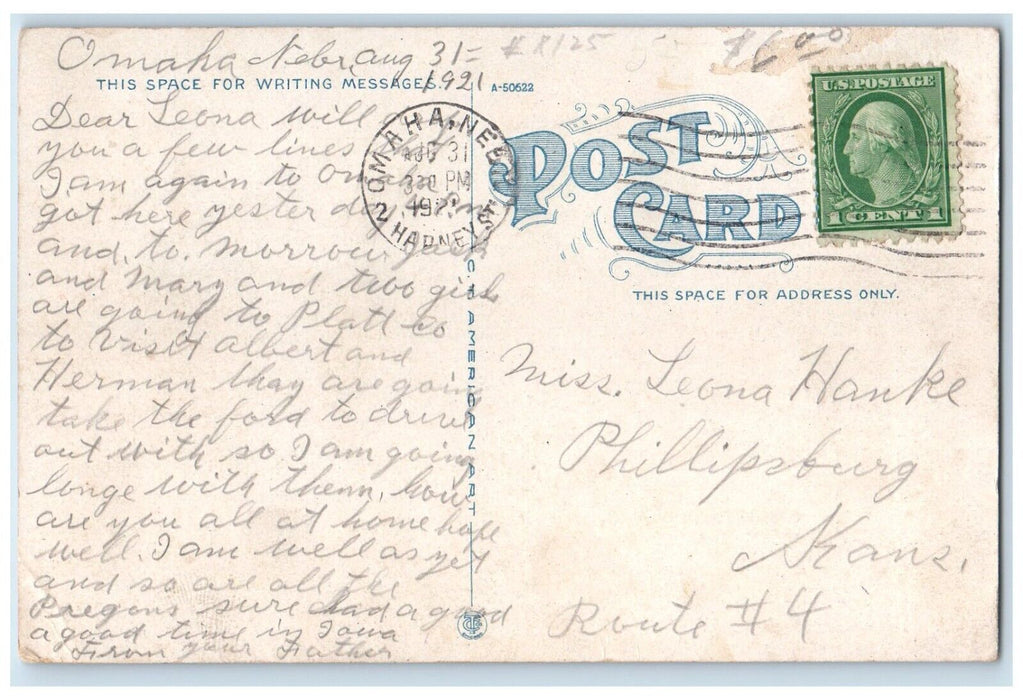 Omaha Nebr, Aug 31=
1921
# X125
$6.00
THIS SPACE FOR WRITING MESSAGES.
A-50622
Dear Leona will
you a few lines
I am again to
got here yester
and, to. morrow
and Mary and two girls
are going to Platt co
to visit Albert and
Herman thay are going
take the ford to drive
out with so I am going
longe with them, how
are you all at home hope
well. I am well as yet
and so are all the
sure had a good
a good time in Iowa
From your Father
OMAHA, NEB.
AUG 31
3 30 PM
1921
2 HARNEY
C.T. AMERICAN ART
POST
CARD
U.S. POSTAGE
1 CENT 1
THIS SPACE FOR ADDRESS ONLY.
Miss. Leona Hanke
Phillipsburg
Kans.
Route #4